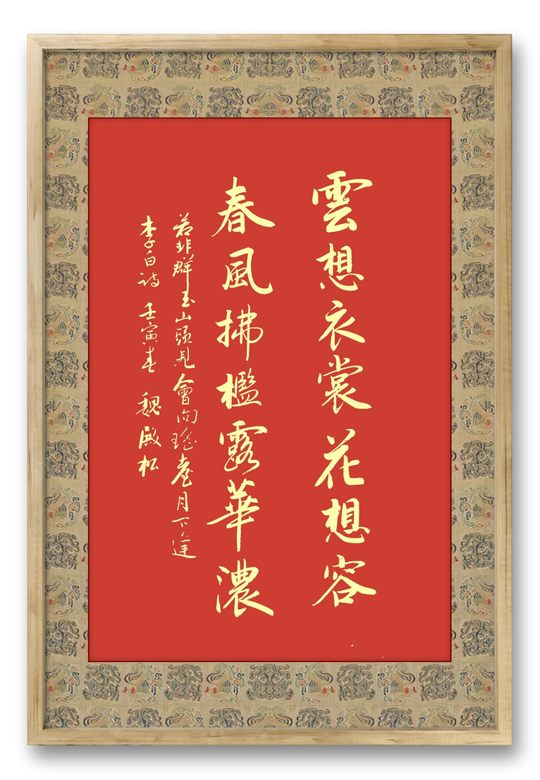 雲想衣裳花想容
春風拂檻露華濃
若非群玉山頭見會向瑤臺月下逢
李白詩 壬寅春 魏殿松